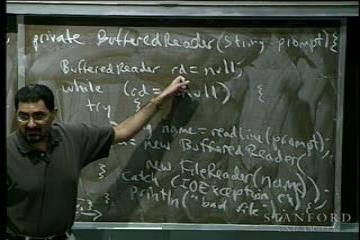 private BufferedReader(String prompt){
BufferedReader rd = null;
while (rd = null) {
try {
name = readLine(prompt);
= new BufferedReader(
new FileReader(name));
catch (IOException ex) {
println("bad file
STANFORD